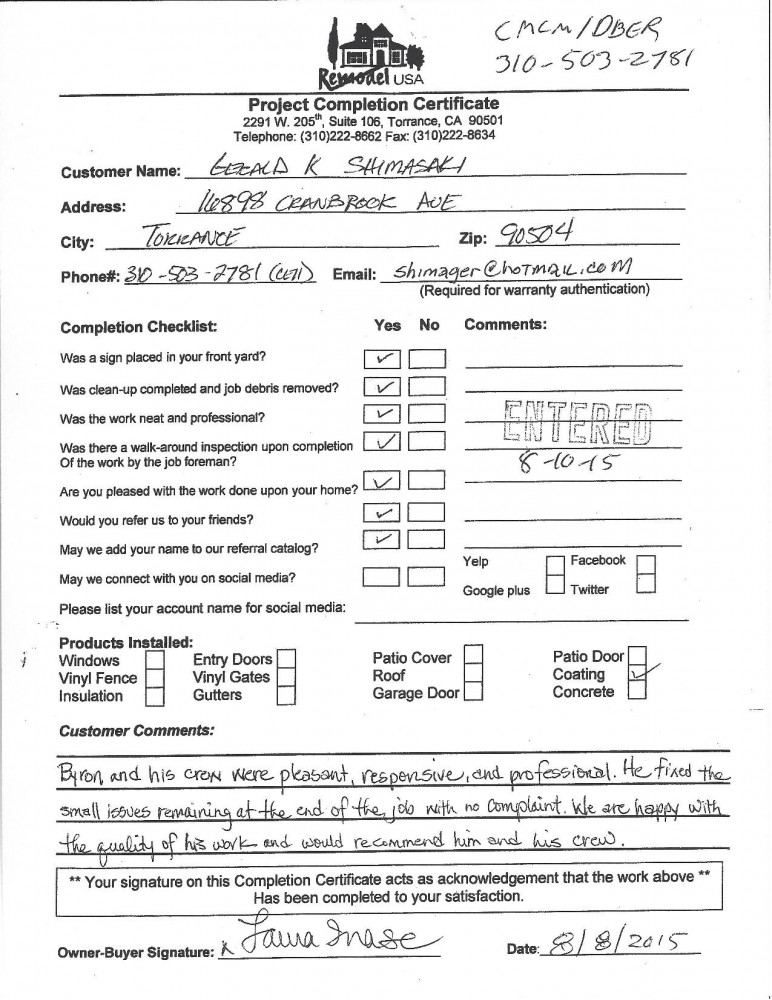 CMCM/DBER
310-503-2781
Remodel USA
Project Completion Certificate
2291 W. 205th, Suite 106, Torrance, CA 90501
Telephone: (310)222-8662 Fax: (310)222-8634
Customer Name: GERALD K SHIMASAKI
Address: 16898 CRANBROOK AVE
City: TORRANCE Zip: 90504
Phone#: 310-503-2781 (CELL) Email: shimager@hotmail.com
(Required for warranty authentication)
Completion Checklist: Yes No Comments:
Was a sign placed in your front yard? ✓
Was clean-up completed and job debris removed? ✓
Was the work neat and professional? ✓
ENTERED
Was there a walk-around inspection upon completion ✓
Of the work by the job foreman?
8-10-15
Are you pleased with the work done upon your home? ✓
Would you refer us to your friends? ✓
May we add your name to our referral catalog? ✓
Yelp Facebook
May we connect with you on social media?
Google plus Twitter
Please list your account name for social media:
Products Installed:
Windows Entry Doors Patio Cover Patio Door
Vinyl Fence Vinyl Gates Roof Coating ✓
Insulation Gutters Garage Door Concrete
Customer Comments:
Byron and his crew were pleasant, responsive, and professional. He fixed the
small issues remaining at the end of the job with no complaint. We are happy with
the quality of his work and would recommend him and his crew.
** Your signature on this Completion Certificate acts as acknowledgement that the work above **
Has been completed to your satisfaction.
Owner-Buyer Signature: x Laura Inase Date: 8/8/2015